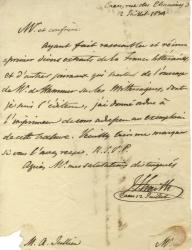 Caen, rue des Chanoines
12 Juillet 1834
Mr. et confrère
Ayant fait rassembler et réim-
primer divers extraits de la france littéraire
et d'autres journaux qui parlent de l'ouvrage
de Mr de sur les dont
je suis l'éditeur, j'ai donné ordre à
l'imprimeur de vous adresser un exemplaire
de cette brochure. Veuillez bien me marquer
si vous l'avez reçue. R.S.V.P.
Agréez Mr. mes salutations distinguées
Caen 12 Juillet
M. A. Jullien
Mr